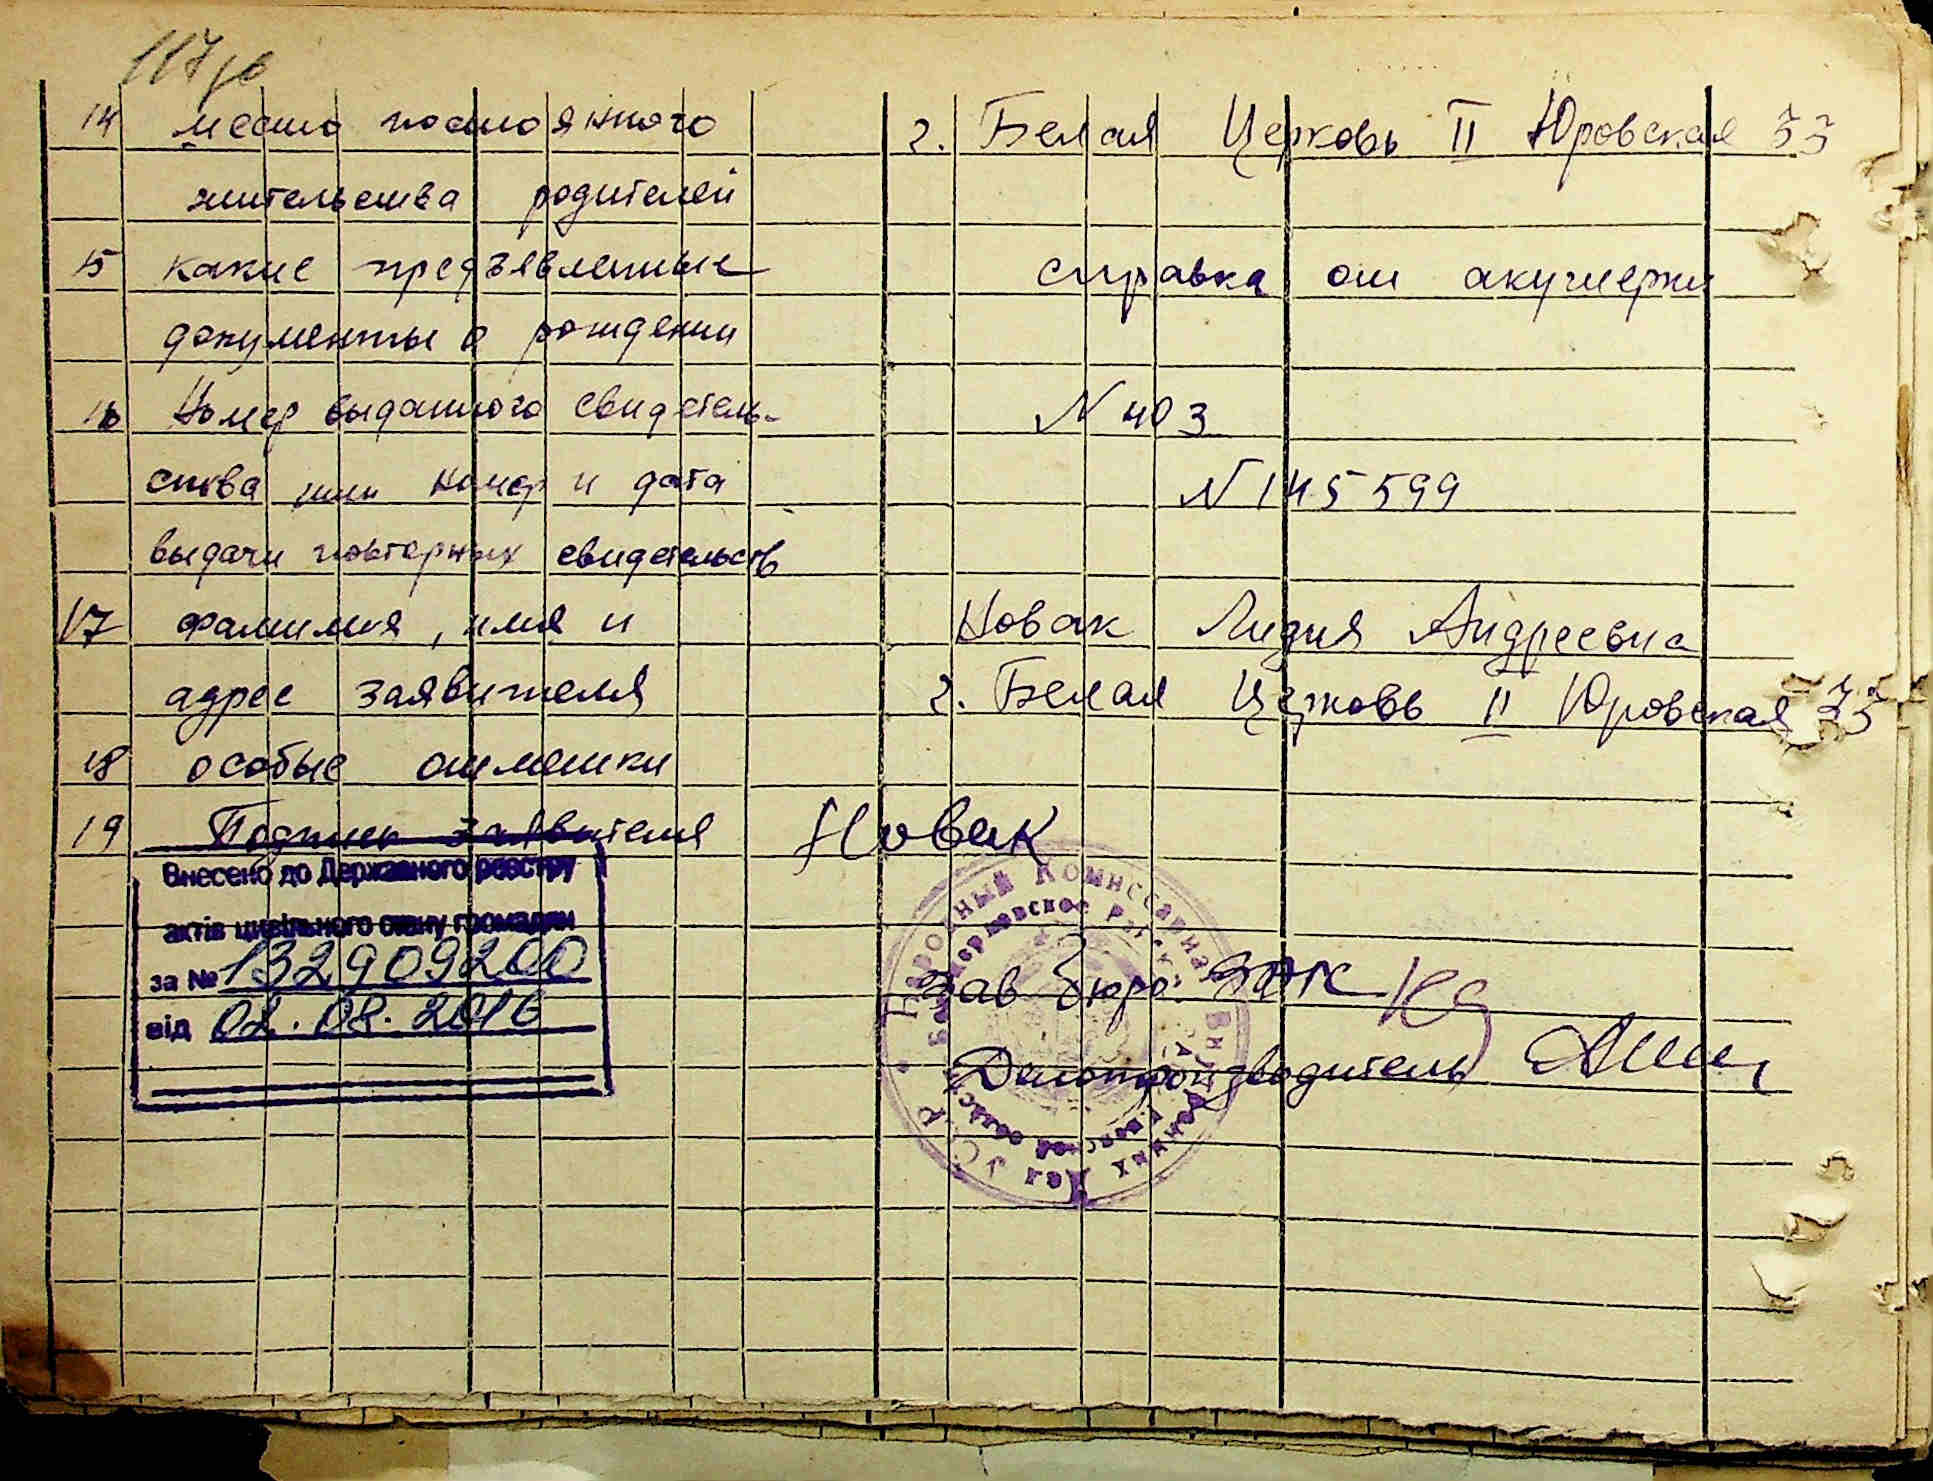 117 зв
14 место постоянного г. Белая Церковь II Юровская 33
жительства родителей
15 какие предъявленные справка от акушерки
документы о рождении
16 Номер выданного свидетель- N 403
ства или номер и дата N 145599
выдачи повторных свидетельств
17 фамилия, имя и Новак Лидия Андреевна
адрес заявителя г. Белая Церковь II Юровская 33
18 особые отметки
19 Подпись заявителя Новак
Внесено до Державного реєстру
актів цивільного стану громадян
за № 132909200
від 02.08.2016
Зав бюро ЗАГС
Делопроизводитель
Народный Комиссариат Внутренних Дел УССР
Киевской област